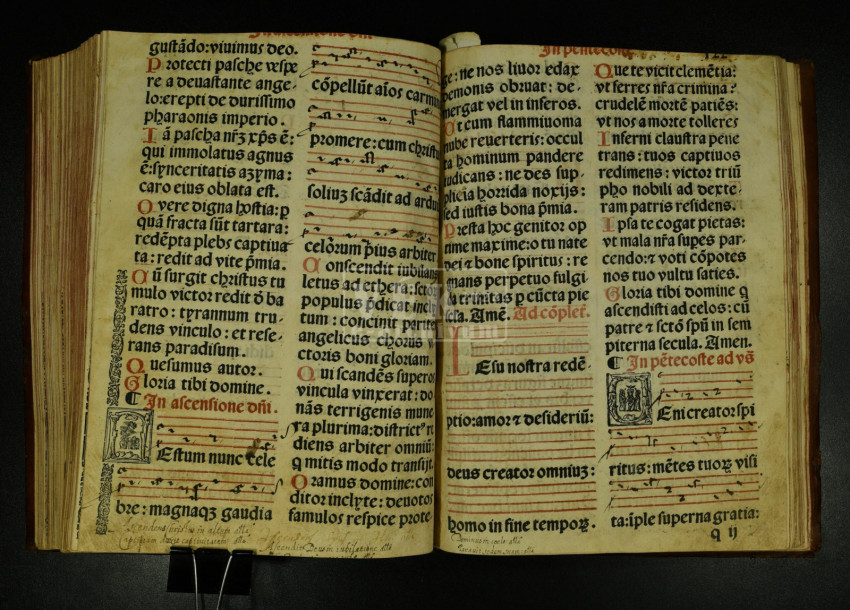 In ascensione dñi.
gustãdo: viuimus deo.
Protecti pasche vespe
re a deuastante ange-
lo: erepti de durissimo
pharaonis imperio.
Iã pascha nr̃ʒ xp̃s ẽ:
qui immolatus agnus
ẽ: synceritatis azyma:
caro eius oblata est.
O vere digna hostia: ꝑ
quã fracta sũt tartara:
redẽpta plebs captiua
ta: redit ad vite p̃mia.
Cũ surgit christus tu
mulo victor redit õ ba
ratro: tyrannum tru-
dens vinculo: et rese-
rans paradisum.
Quesumus autor.
Gloria tibi domine.
¶ In ascensione dñi.
FEstum nunc cele
bre: magnaqʒ gaudia
cõpellũt aĩos carmin
promere: cum christ
soliuʒ scãdit ad ardu
celorum p̃ius arbiter
Conscendit iubilans
letus ad ethera: sctõ
populus p̃dicat incly
tum: concinit parite
angelicus chorus v
ctoris boni gloriam.
Qui scandẽs supero
vincula vinxerat: do
nãs terrigenis mune
ra plurima: districtꝰ
diens arbiter omniũ:
q mitis modo transijt.
Oramus domine: con
ditor inclyte: deuotos
famulos respice prote-
In pentecoste
ge: ne nos liuor edax
demonis obruat: de-
mergat vel in inferos.
Ut cum flammiuoma
nube reuerteris: occul
ta hominum pandere
iudicans: ne des sup-
plicia horrida noxijs:
sed iustis bona p̃mia.
Presta hoc genitor op
time maxime: o tu nate
dei ⁊ bone spiritus: re
gnans perpetuo fulgi
da trinitas ꝑ cũcta pie
secla. Amẽ. Ad cõplet.
IEsu nostra redẽ-
ptio: amor ⁊ desideriũ:
deus creator omniuʒ:
homo in fine tempoꝝ.
Que te vicit clemẽtia:
vt ferres nr̃a crimina?
crudelẽ mortẽ patiẽs:
vt nos a morte tolleres
Inferni claustra pene
trans: tuos captiuos
redimens: victor triũ
pho nobili ad dexte-
ram patris residens.
Ipsa te cogat pietas:
vt mala nr̃a supes par-
cendo: ⁊ voti cõpotes
nos tuo vultu saties.
Gloria tibi domine q
ascendisti ad celos: cũ
patre ⁊ sctõ spũ in sem
piterna secula. Amen.
¶ In pẽtecoste ad vs̃
VEni creator spi
ritus: mẽtes tuoꝝ visi
ta: ĩple superna gratia:
q ij